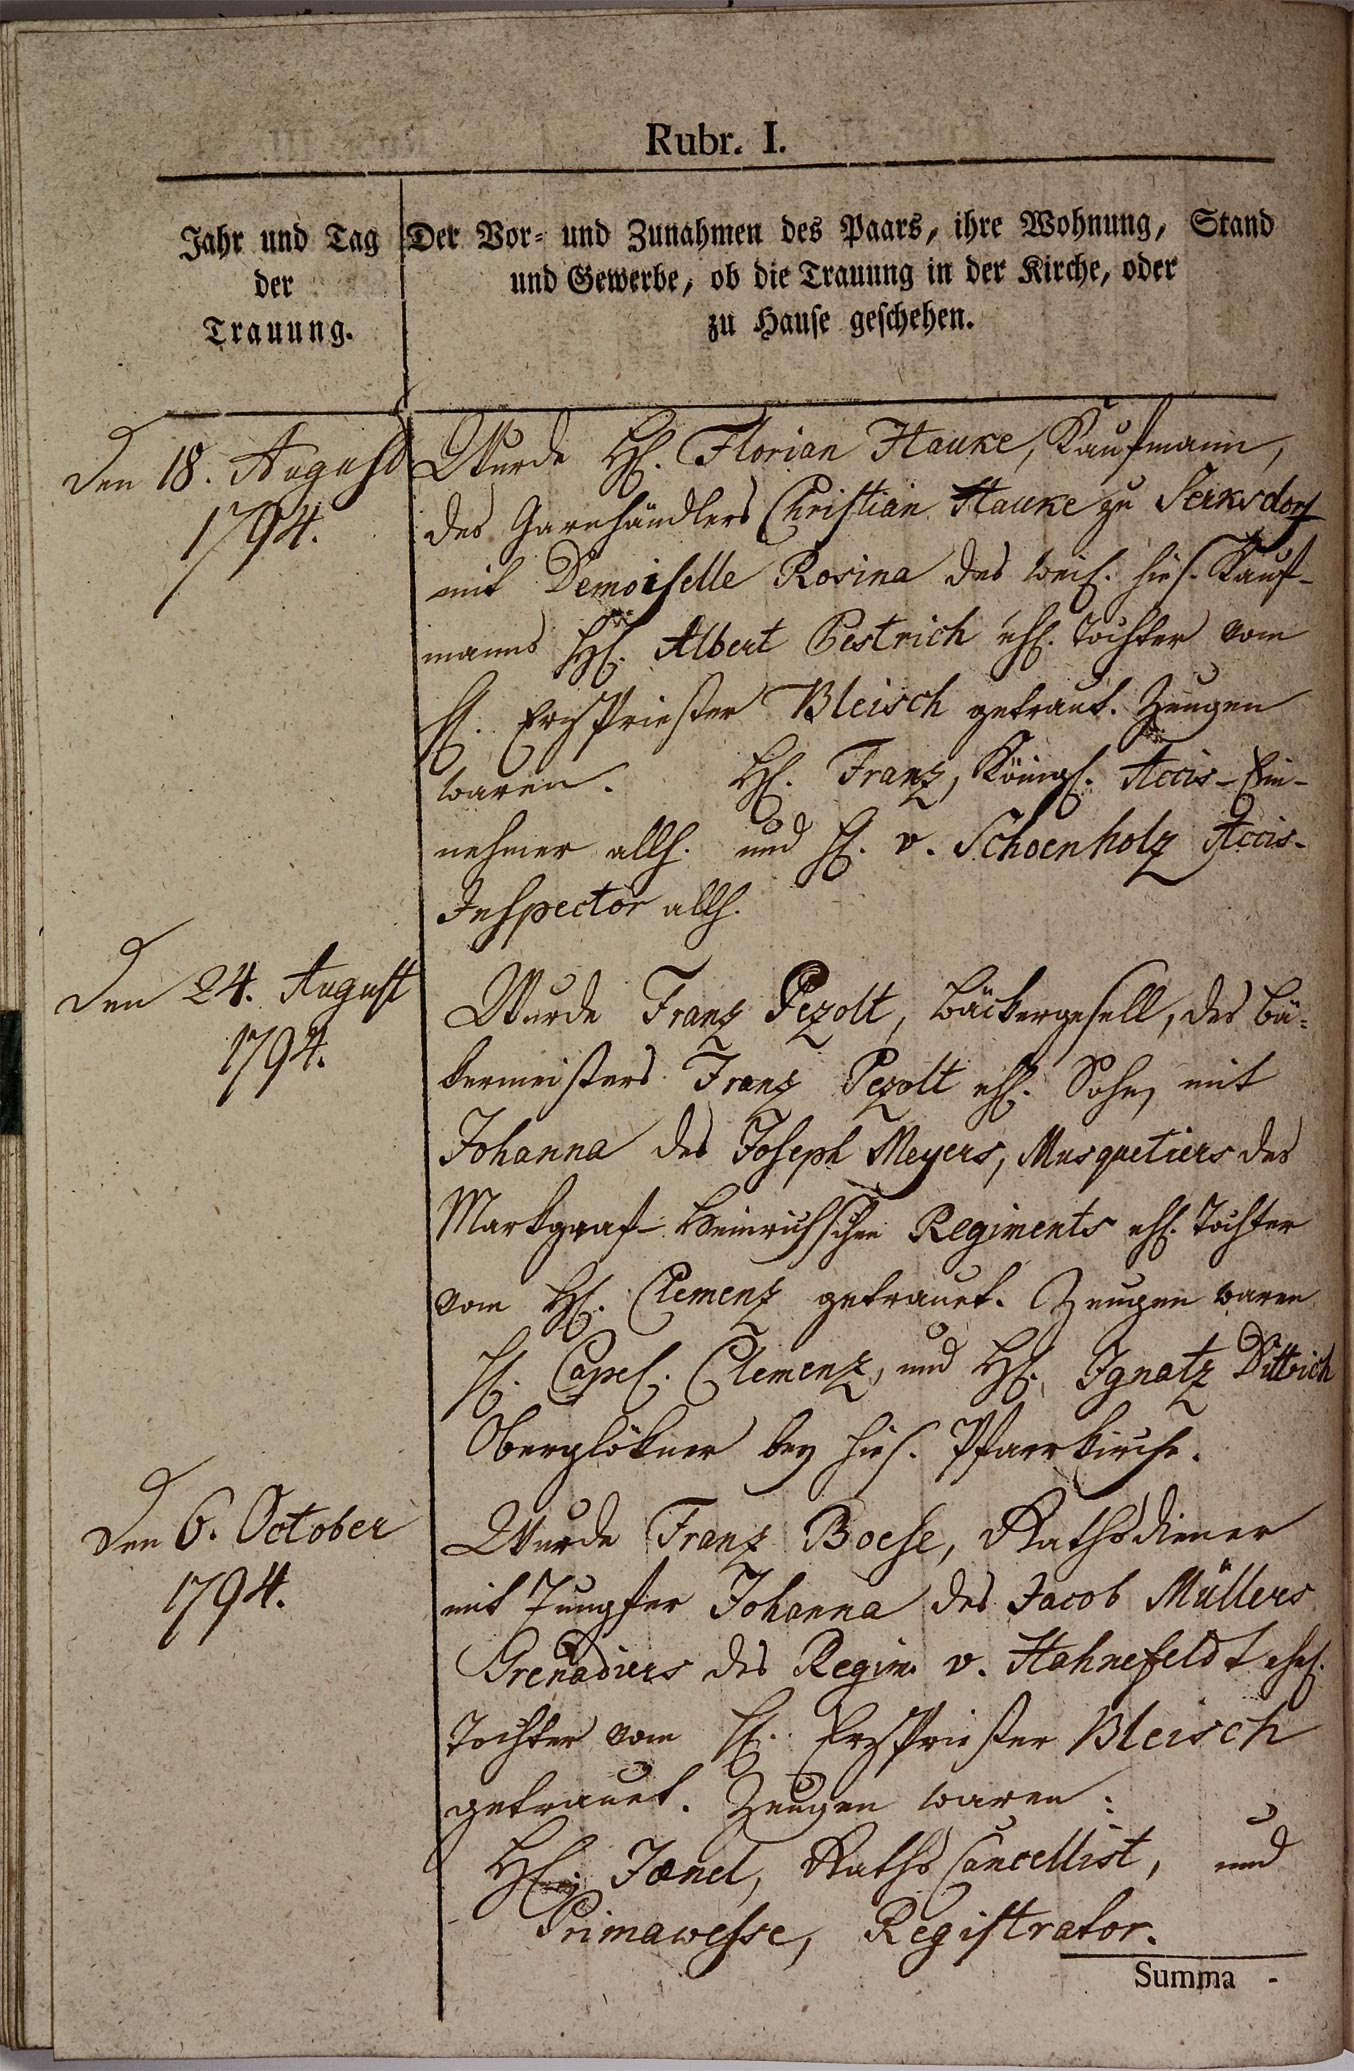 Rubr. I.
Jahr und Tag
der
Trauung.
Der Vor- und Zunahmen des Paars, ihre Wohnung, Stand
und Gewerbe, ob die Trauung in der Kirche, oder
zu Hause geschehen.
Den 18. August
1794.
Wurde H. Florian Hauke, Kaufmann,
des Garnhändlers Christian Hauke zu
mit Demoiselle Rosina des weil. hies. Kauf-
manns H. Albert Pestrich ehl. Tochter vom
H. ErzPriester Bleisch getraut. Zeugen
waren. H. Franz, Königl. Accis-Ein-
nehmer allh. und H. v. Schoenholz Accis-
Inspector allh.
Den 24. August
1794.
Wurde Franz Pezolt, Bäckergesell, des Bä-
kermeisters Franz Pezolt ehl. Sohn, mit
Johanna des Joseph Meyers, Musquetiers des
Markgraf Heinrichschen Regiments ehl. Tochter
vom H. Clemenz getrauet. Zeugen waren
H. Capel. Clemenz, und H. Ignatz Dittrich
Oberglökner bey hies. Pfarrkirche.
Den 6. October
1794.
Wurde Franz Boese, Rathsdiener
mit Jungfer Johanna des Jacob Müllers
Grenadiers des Regim. v. Hahnefeldt ehel.
Tochter vom H. ErzPriester Bleisch
getrauet. Zeugen waren:
H. Jænel, Raths Cancellist, und
Primavesse, Registrator.
Summa -